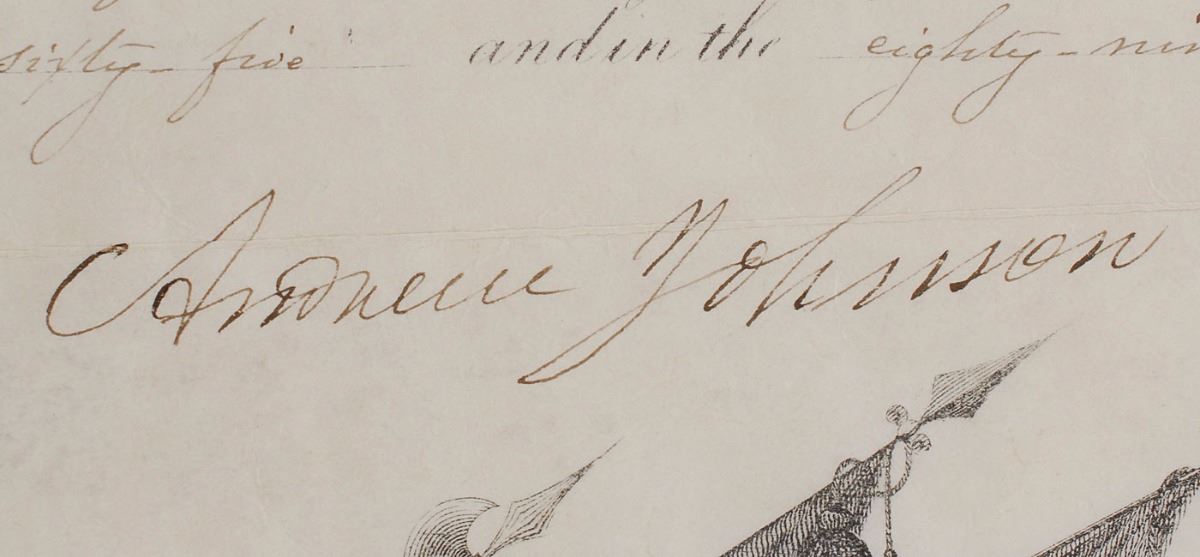 sixty-five and in the eighty-nin
Andrew Johnson